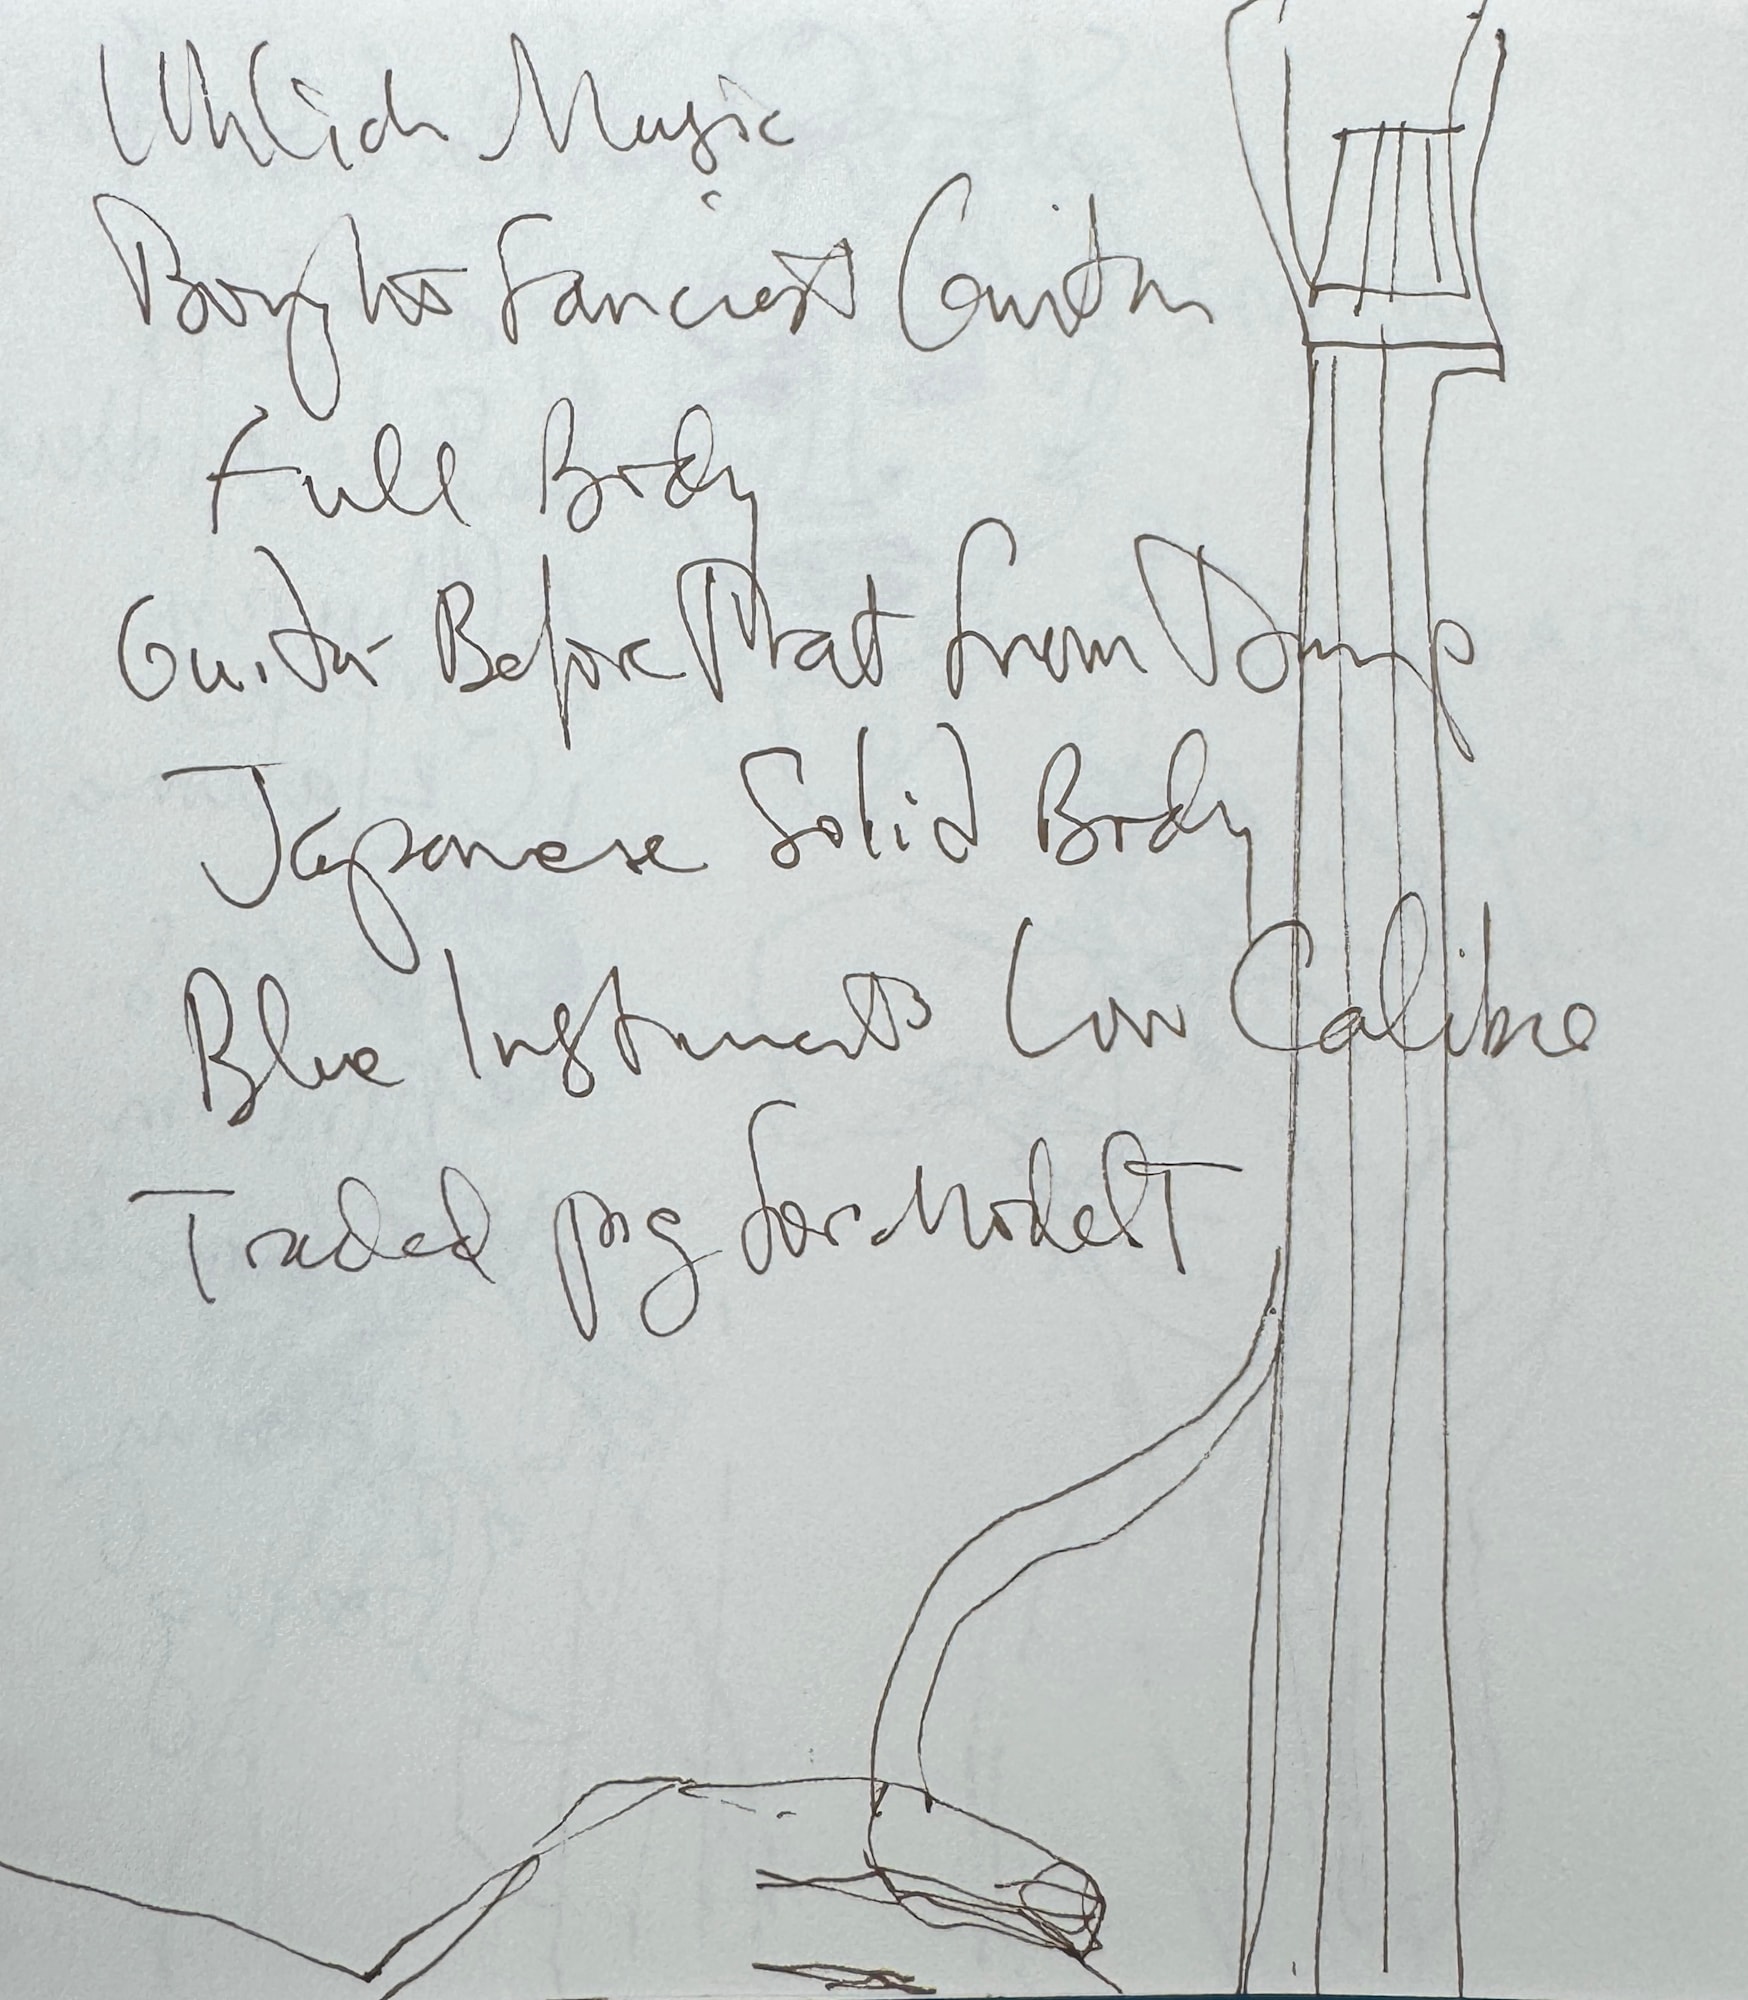 Uhlich Music
Bought Fanciest Guitar
Full Body
Guitar Before That from Dump
Japanese Solid Body
Blue Instruments Low Calibre
Traded pig for Model T